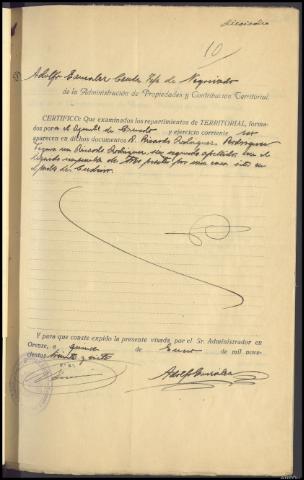 10
Adolfo González Jefe de Negociado
de la Administración de Propiedades y Contribución Territorial.
CERTIFICO: Que examinados los repartimientos de TERRITORIAL, forma-
dos para el y ejercicio corriente no
aparecen en dichos documentos D. Ricardo Rodríguez Rodríguez
Figura un Ricardo Rodríguez, sin segundo apellido, con el
líquido imponible de pesetas por una casa sita en
Y para que conste expido la presente visada por el Sr. Administrador en
Orense, a quince de Enero de mil nove-
cientos treinta y siete
Vº Bº
Adolfo González